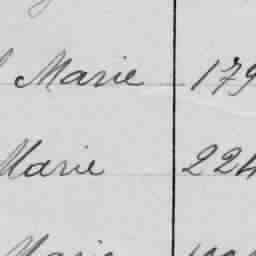 Marie 179
Marie 224
Marie